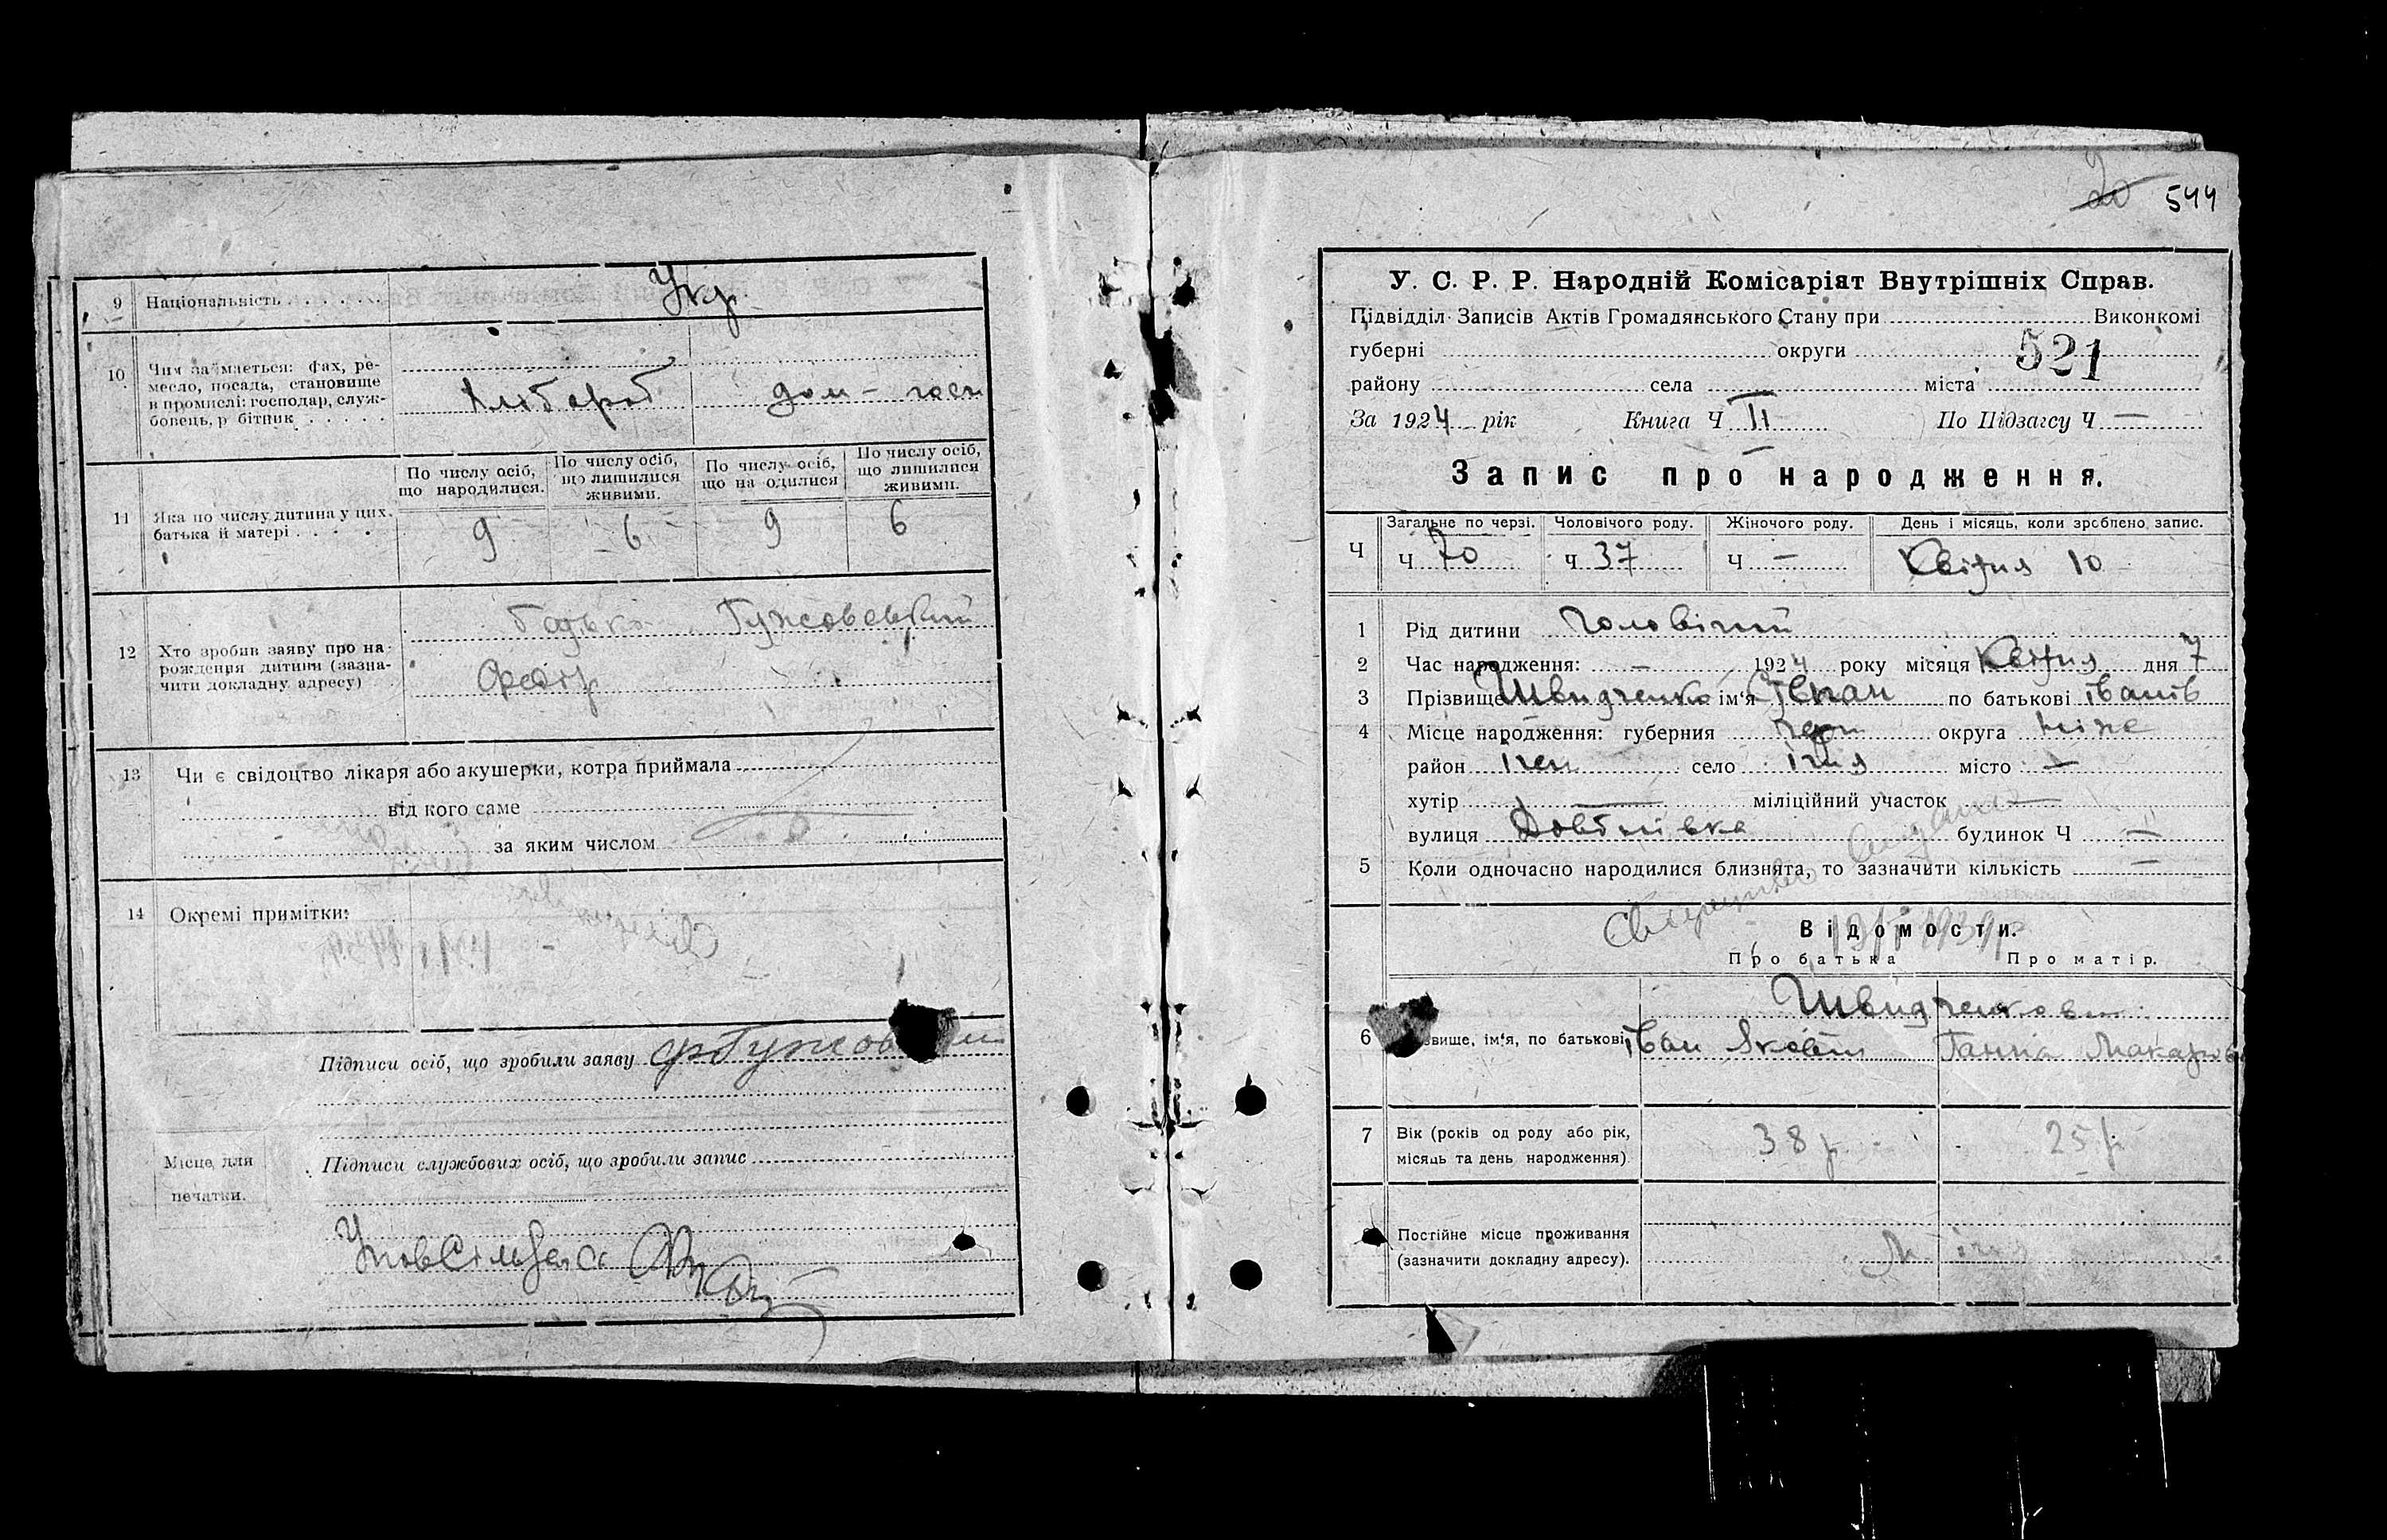 9 Національність . . . . . . . Укр.
10 Чим займається: фах, ре-
месло, посада, становище
в промислі: господар, служ-
бовець, р бітник . . . . .
Хлібороб дом – госп
11 Яка по числу дитина у цих.
батька й матері . . . .
По числу осіб, що народилися. 9
По числу осіб, що лишилися живими. 6
По числу осіб, що на одилися 9
По числу осіб, що лишилися живими. 6
12 Хто зробив заяву про на-
рождення дитини (зазна-
чити докладну адресу)
батько Гужовський
Федір
13 Чи є свідоцтво лікаря або акушерки, котра приймала
від кого саме
за яким числом
14 Окремі примітки:
Підписи осіб, що зробили заяву
Підписи службових осіб, що зробили запис
Місце для
печатки.
20 544
У. С. Р. Р. Народній Комісаріят Внутрішніх Справ.
Підвідділ Записів Актів Громадянського Стану при Виконкомі
губерні округи 521
району села міста
За 1924 рік Книга Ч II По Підзагсу Ч —
Запис про народження.
Ч
Загальне по черзі. Чоловічого роду. Жіночого роду. День і місяць, коли зроблено запис.
Ч 70 Ч 37 Ч — Квітня 10
1 Рід дитини чоловічий
2 Час народження: — 1924 року місяця Квітня дня 7
3 Прізвище Швидченко ім'я Степан по батькові Іванів
4 Місце народження: губерния Черн округа Ніже
район Ічен село Ічня місто —
хутір — міліційний участок —
вулиця будинок Ч —
5 Коли одночасно народилися близнята, то зазначити кількість —
Відомости.
Про батька Про матір.
Швидченкови
6 звище, ім'я, по батькові Іван Яковів Ганна Макарівна
7 Вік (років од роду або рік,
місяць та день народження) 38 р. 25 р.
Постійне місце проживання
(зазначити докладну адресу). м. Ічня